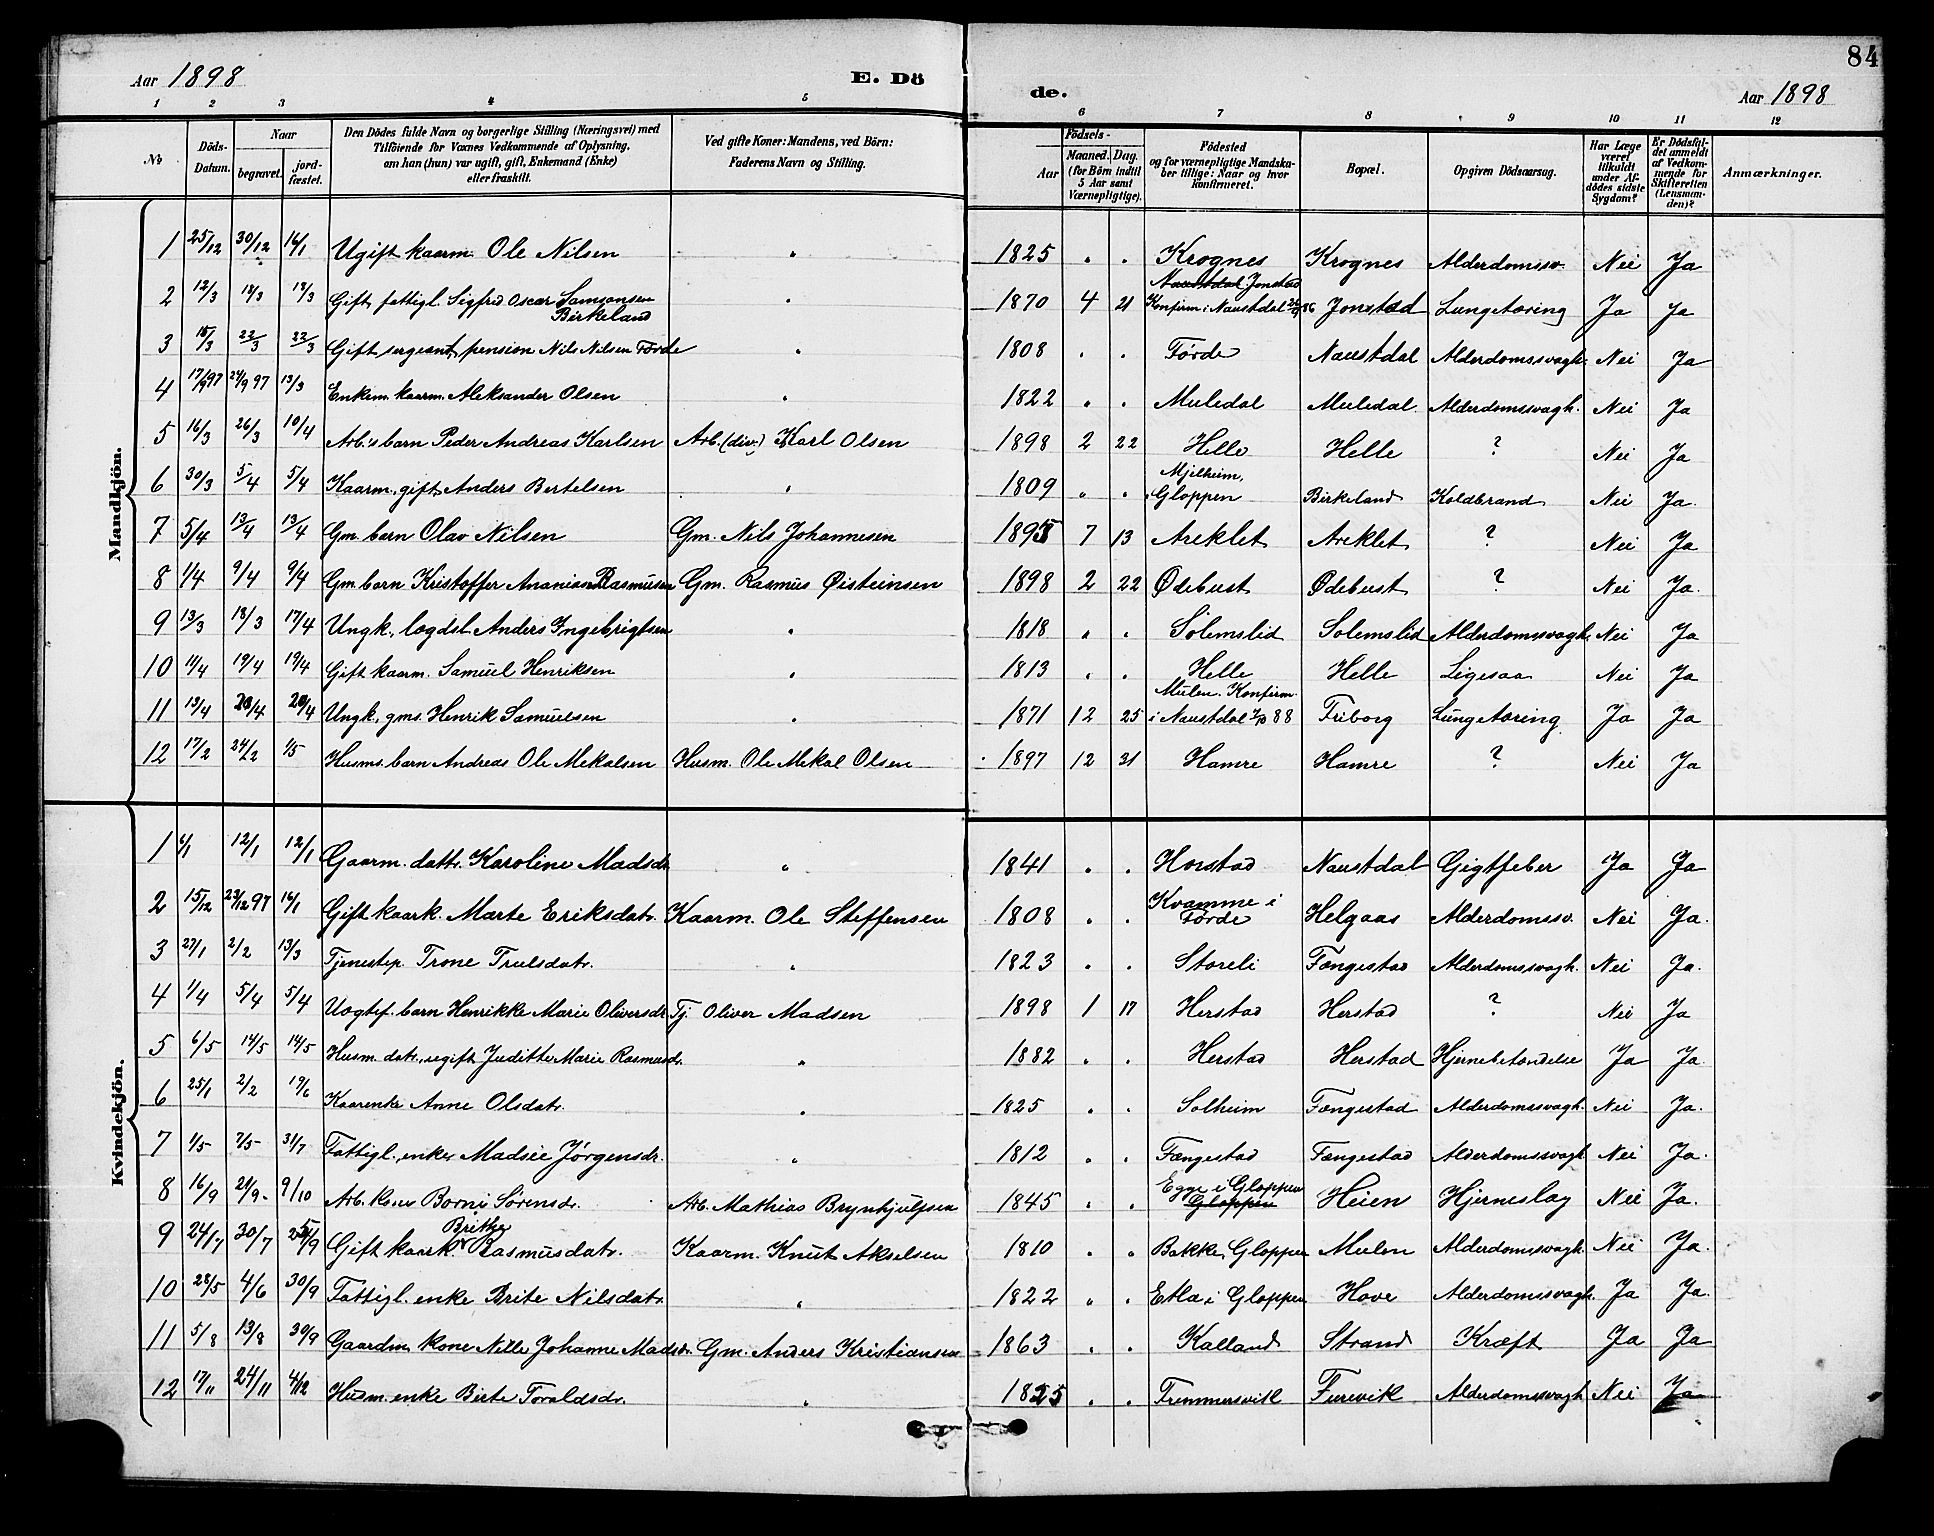 84
Aar 1898 E. Dö de. Aar 1898
1 2 3 4 5 6 7 8 9 10 11 12
No
Döds-Datum.
Naar
begravet.
jord-fæstet.
Den Dödes fulde Navn og borgerlige Stilling (Næringsvei) med
Tilföiende for Voxnes Vedkommende af Oplysning.
om han (hun) var ugift, gift, Enkemand (Enke)
eller fraskilt.
Ved gifte Koner: Mandens, ved Börn:
Faderens Navn og Stilling.
Födsels-
Aar
Maaned. Dag.
(for Börn indtil
5 Aar samt
Værnepligtige).
Födested
og for værnepligtige Mandska-
ber tillige: Naar og hvor
konfirmeret.
Bopæl.
Opgiven Dödsaarsag.
Har Læge
været
tilkaldt
under Af-
dödes sidste
Sygdom?
Er Dödsfal-
det anmeldt
af Vedkom-
mende for
Skifteretten
(Lensman-
den)?
Anmærkninger.
Mandkjön.
1 25/12 30/12 16/1 Ugift kaarm. Ole Nilsen " 1825 " " Krognes Krognes Alderdomssv. Nei Ja
2 12/3 18/3 18/3 Gift, fattigl. Sigfred Oscar Samsonsen Birkeland " 1870 4 21 Naustdal Jonstad Konfirm. i Naustdal 86 Jonstad Lungetæring Ja Ja
3 15/3 22/3 22/3 Gift, sergeant, pension Nils Nilsen Förde " 1808 " " Förde Naustdal Alderdomssvagh. Nei Ja
4 17/9 97 24/9 97 13/3 Enkem. kaarm. Aleksander Olsen " 1822 " " Muledal Muledal Alderdomssvagh. Nei Ja
5 16/3 26/3 10/4 Arb.s barn Peder Andreas Karlsen Arb. (div.) Karl Olsen 1898 2 22 Helle Helle ? Nei Ja
6 30/3 5/4 5/4 Kaarm., gift, Anders Bertelsen " 1809 " " Mjelheim, Gloppen Birkeland Koldbrand Nei Ja.
7 5/4 13/4 13/4 Gm. barn Olav Nilsen Gm. Nils Johannesen 7 13 Areklet Areklet ? Nei Ja
8 1/4 9/4 9/4 Gm. barn Kristoffer Ananias Rasmusen Gm. Rasmus Øisteinsen 1898 2 22 Ødebust Ødebust ? Nei Ja.
9 13/3 18/3 17/4 Ungk., lægdsl. Anders Ingebrigtsen " 1818 " " Solemslid Solemslid Alderdomssvagh. Nei Ja
10 11/4 19/4 19/4 Gift kaarm. Samuel Henriksen " 1813 " " Helle Helle Ligesaa Nei Ja
11 13/4 20/4 20/4 Ungk., gms. Henrik Samuelsen " 1871 12 25 Mulen. Konfirm. i Naustdal 88 Friborg Lungetæring Ja Ja
12 17/2 24/2 1/5 Husms. barn Andreas Ole Mekalsen Husm. Ole Mekal Olsen 1897 12 31 Hamre Hamre ? Nei Ja
Kvindekjön.
1 6/1 12/1 12/1 Gaarm. dattr. Karoline Madsdr. " 1841 " " Horstad Naustdal Gigtfeber Ja Ja
2 15/12 23/12 97 16/1 Gift kaark. Marte Eriksdatr. Kaarm. Ole Steffensen 1808 " " Kvamme i Förde Helgaas Alderdomssv. Nei Ja.
3 27/1 2/2 13/3 Tjenestep. Trone Truelsdatr. " 1823 " " Storeli Fængestad Alderdomssvagh. Nei Ja.
4 1/4 5/4 5/4 Uægtef. barn Henrikke Marie Oliversdr. Tj. Oliver Madsen 1898 1 17 Herstad Herstad ? Nei Ja
5 6/5 14/5 14/5 Husm. datr., ugift Juditte Marie Rasmusdr. " 1882 " " Herstad Herstad Hjernebetændelse Ja Ja
6 25/1 2/2 19/6 Kaarenke Anne Olsdatr. " 1825 " " Solheim Fængestad Alderdomssvagh. Nei Ja.
7 1/5 7/5 31/7 Fattigl., enke Madsie Jørgensdr. " 1812 " " Fængestad Fængestad Alderdomssvagh. Nei Ja.
8 16/9 21/9 9/10 Arb. kone Borni Sørensdr. Arb. Mathias Brynhjulfsen 1845 " " Egge i Gloppen Gloppen Heien Hjerneslag Nei Ja.
9 24/7 30/7 25/9 Gift kaark. Brithe Rasmusdatr. Kaarm. Knut Akselsen 1810 " " Bakke, Gloppen Mulen Alderdomssvagh. Nei Ja.
10 28/5 4/6 30/9 Fattigl. enke Brite Nilsdatr. " 1822 " " Etla i Gloppen Hove Alderdomssvagh. Ja Ja.
11 5/8 13/8 30/9 Gaardm. kone Nille Johanne Madsdr. Gm. Anders Kristiansen 1863 " " Kalland Strand Kræft Ja Ja
12 17/11 24/11 4/12 Husm. enke Birte Toraldsdr. " 1825 " " Fremmersvik Furevik Alderdomssvagh. Nei Ja